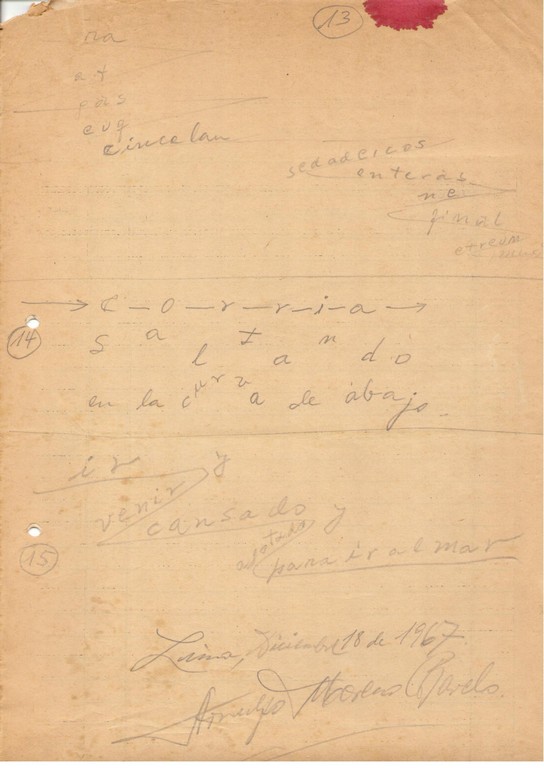 13
ra
at
pas
euq
cincelan
sedadeicos
enteras
ne
final
etreum
→ C-o-r-r-i-a →
14
S a l t a n d o
en la curva de abajo
ir y
venir
cansado y
para ir al mar
15
Lima, Diciembre 18 de 1967.
Moreno